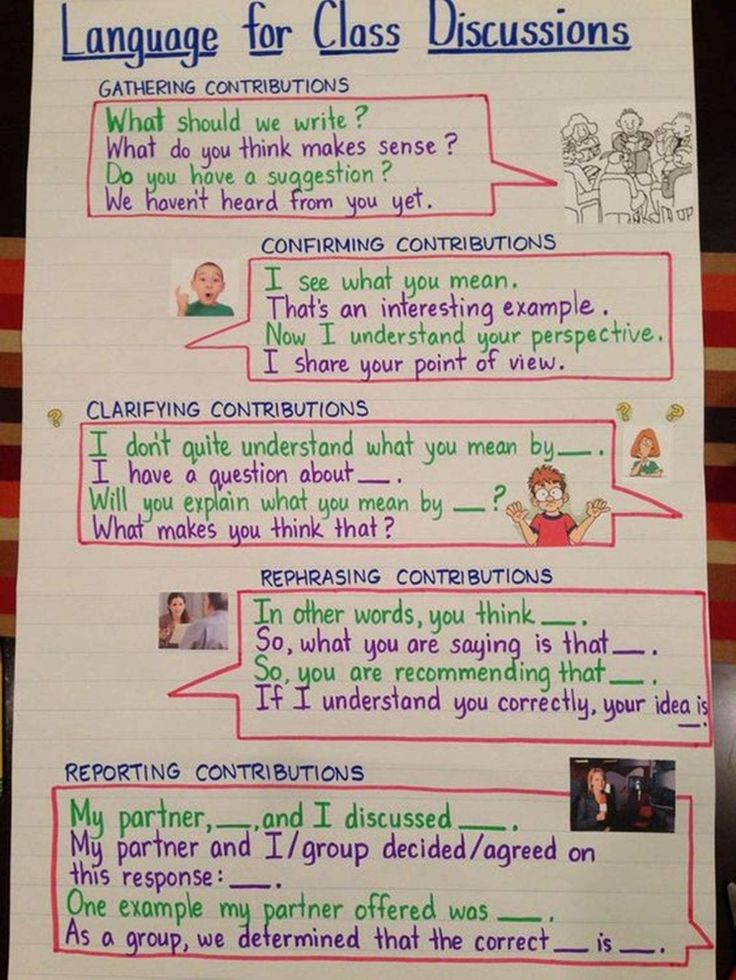 Language for Class Discussions
GATHERING CONTRIBUTIONS
What should we write?
What do you think makes sense?
Do you have a suggestion?
We haven't heard from you yet.
CONFIRMING CONTRIBUTIONS
I see what you mean.
That's an interesting example.
Now I understand your perspective.
I share your point of view.
? CLARIFYING CONTRIBUTIONS ? ?
I don't quite understand what you mean by___.
I have a question about___.
Will you explain what you mean by ___?
What makes you think that?
REPHRASING CONTRIBUTIONS
In other words, you think ___.
So, what you are saying is that___.
So, you are recommending that___.
If I understand you correctly, your idea is
___.
REPORTING CONTRIBUTIONS
My partner,___,and I discussed ___.
My partner and I/group decided/agreed on
this response:___.
One example my partner offered was ___.
As a group, we determined that the correct___ is ___.